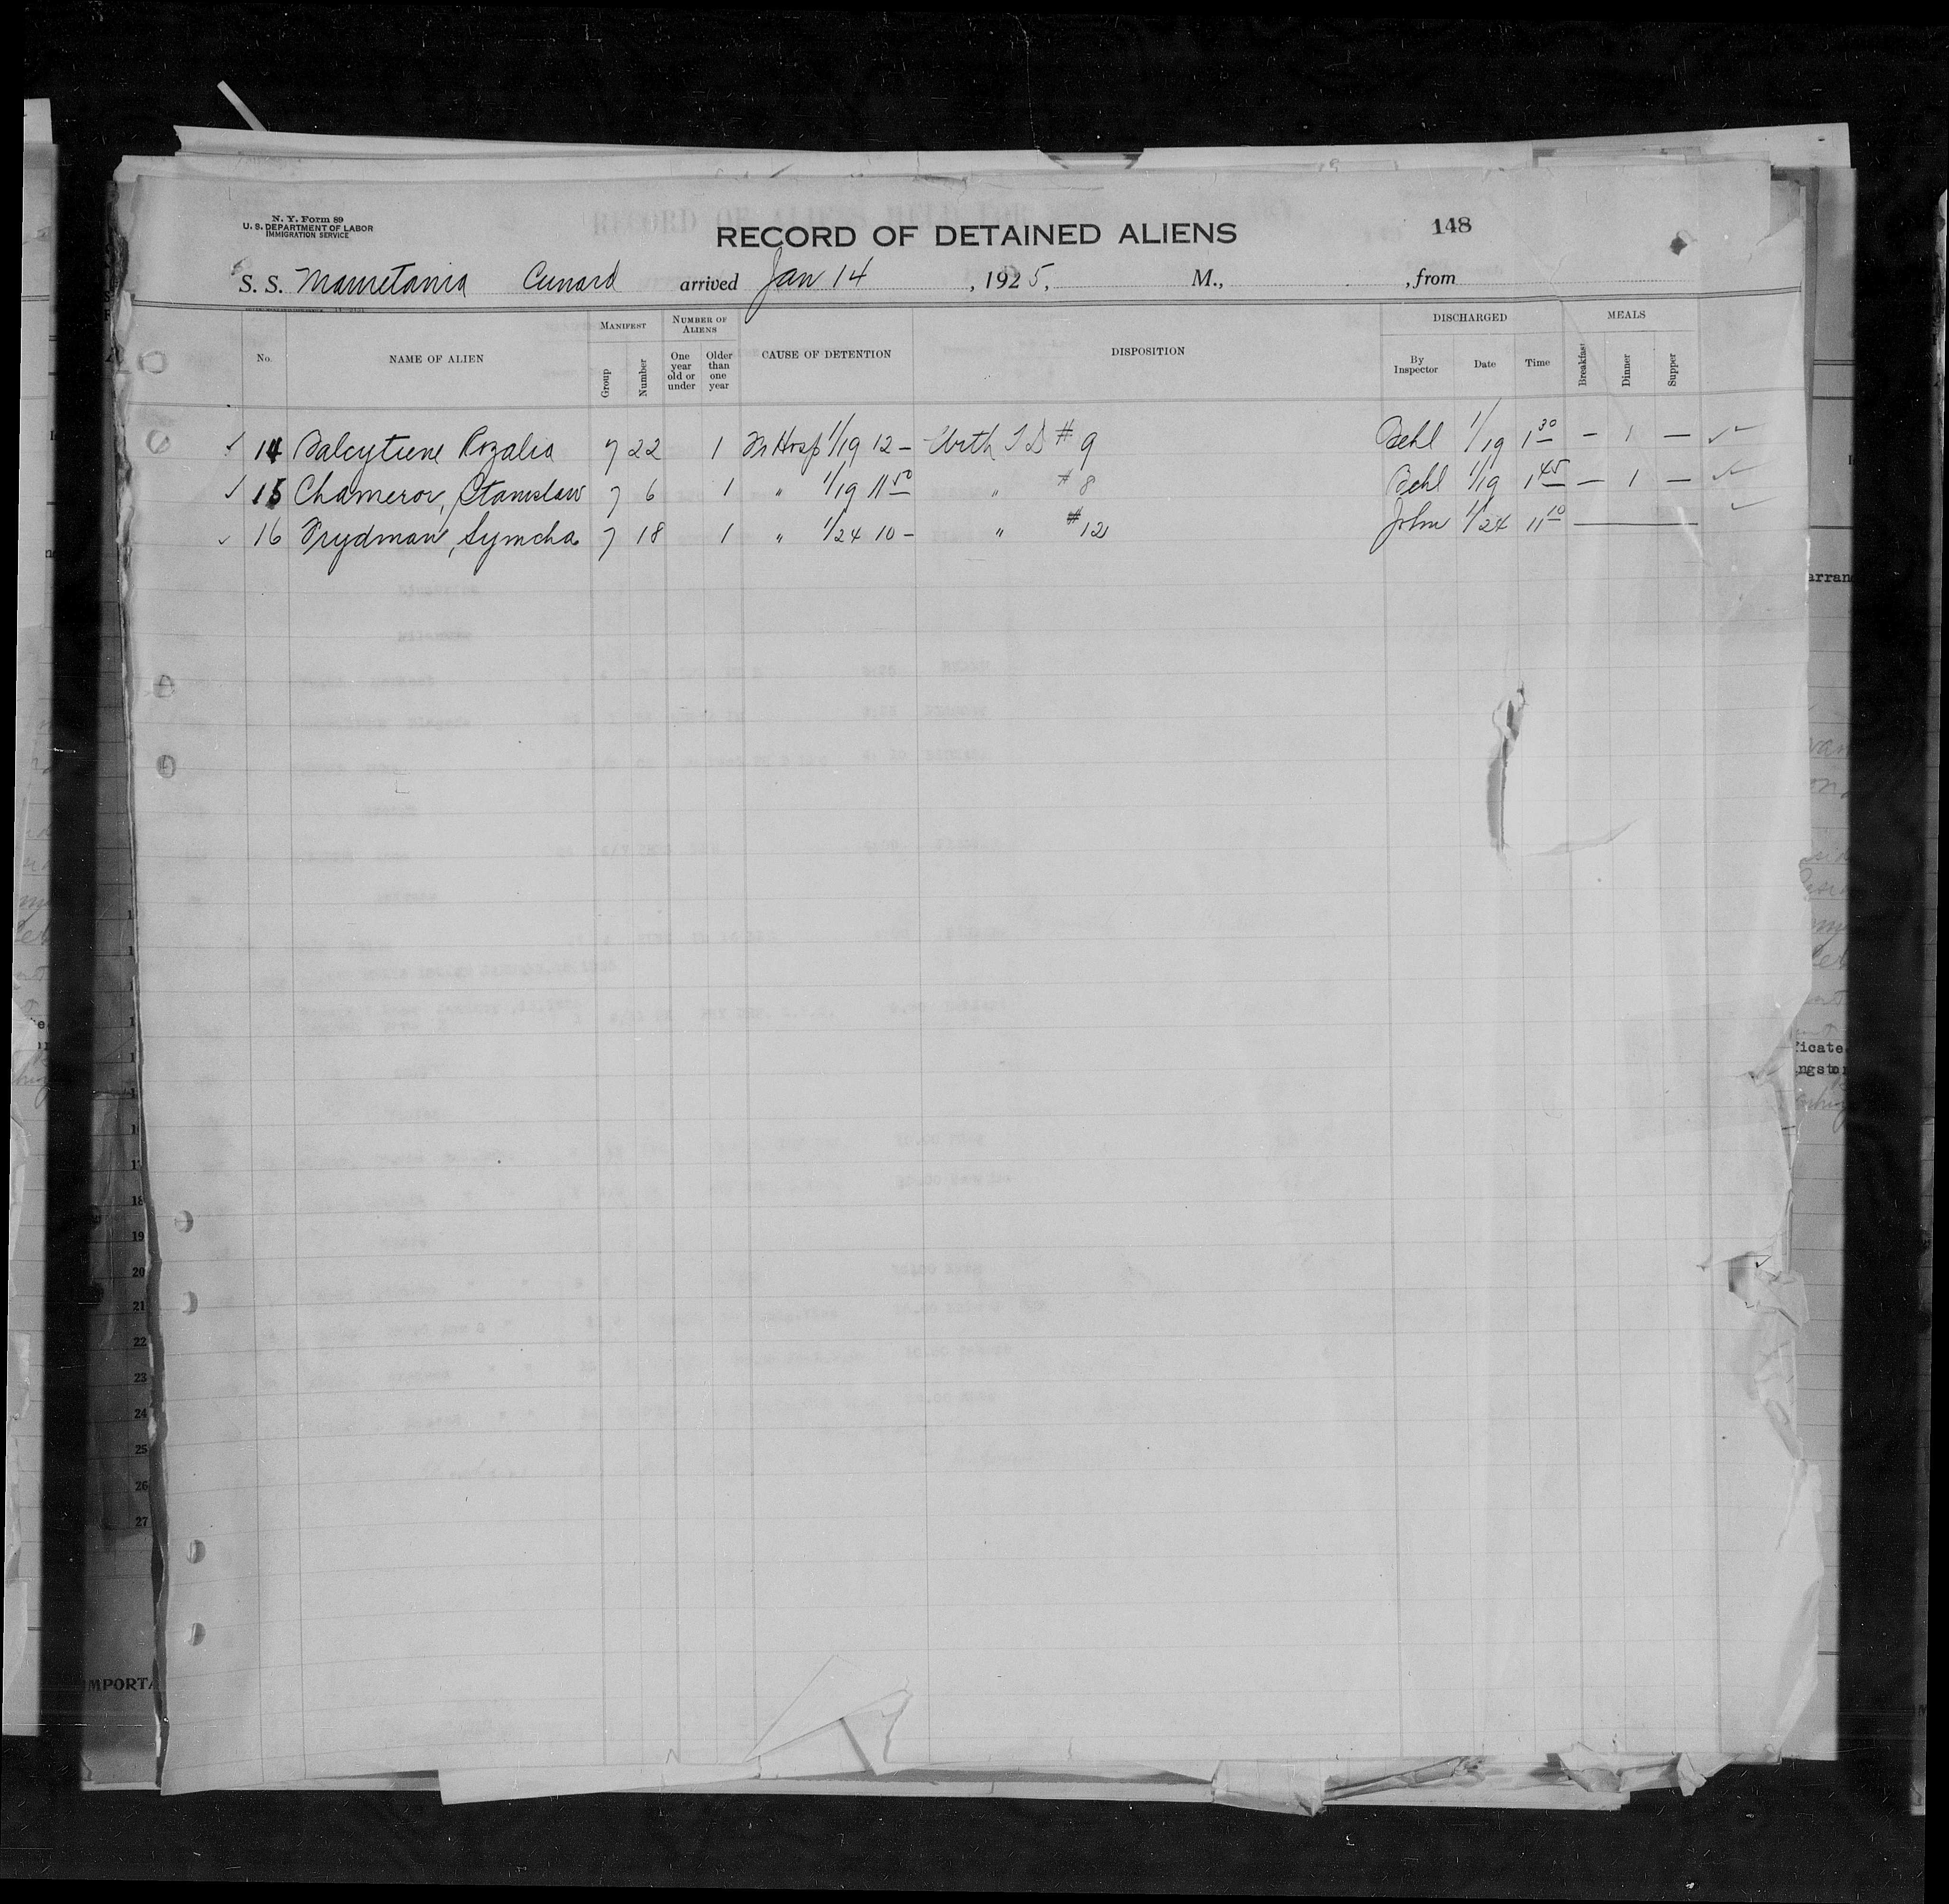 N. Y. Form 89
U. S. DEPARTMENT OF LABOR
IMMIGRATION SERVICE
RECORD OF DETAINED ALIENS
148
S. S. Mauretania Cunard arrived Jan 14, 1925, M., , from
No. NAME OF ALIEN MANIFEST Group Number NUMBER OF ALIENS One year old or under Older than one year CAUSE OF DETENTION DISPOSITION DISCHARGED By Inspector Date Time MEALS Breakfast Dinner Supper
✓ 14 Balcytiene Rozalia 7 22 1 Hosp 1/19 12 - # 9 Behl 1/19 1 30 - 1 - ✓
✓ 15 Chamerov, Stanislaw 7 6 1 " 1/19 11 50 " # 8 Behl 1/19 1 45 - 1 - ✓
✓ 16 Frydman, Symcha 7 18 1 " 1/24 10 - " # 12 John 1/24 11 10 ✓
arran
ficate
ngston
18
19
20
21
22
23
24
25
26
27
MPORTA